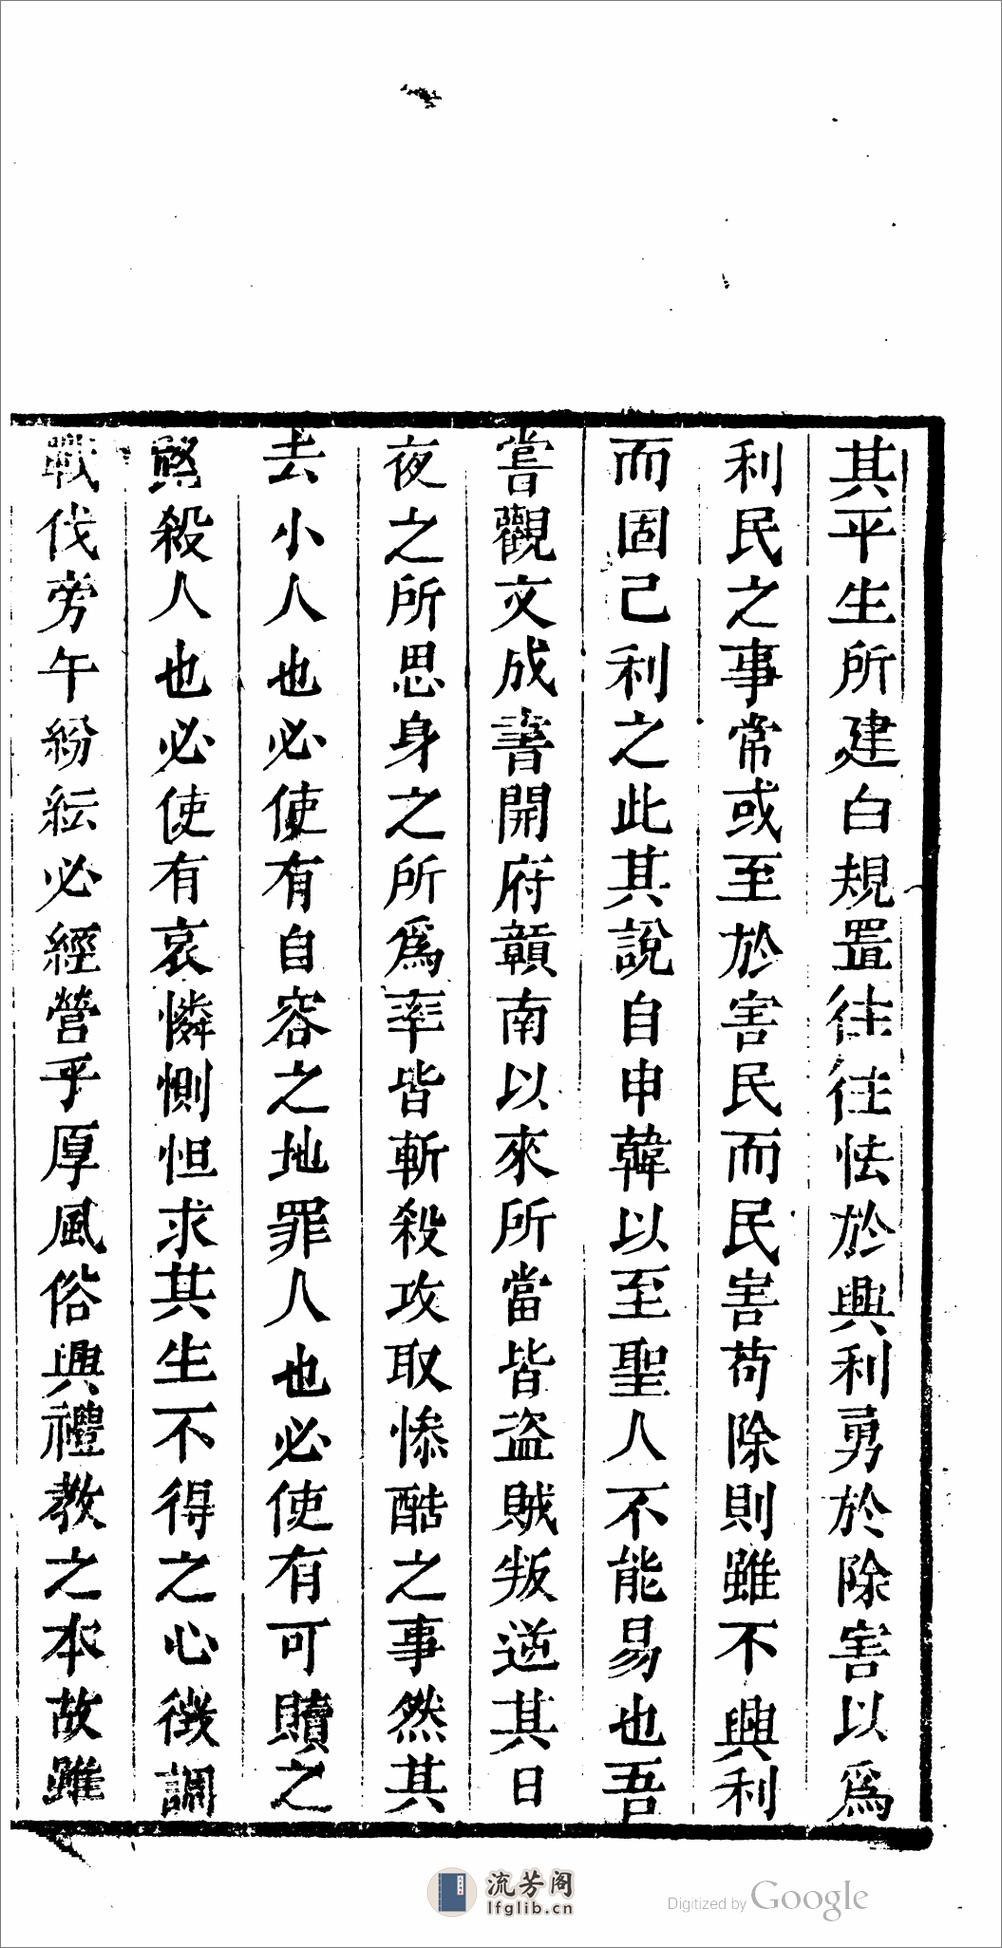 其平生所建白規置往往怯於興利勇於除害以爲
利民之事常或至於害民而民害苟除則雖不興利
而固己利之此其說自申韓以至聖人不能易也吾
嘗觀文成書開府贛南以來所當皆盗賊叛逆其日
夜之所思身之所爲率皆斬殺攻取慘酷之事然其
去小人也必使有自容之地罪人也必使有可贖之
殺人也必使有哀憐惻怛求其生不得之心徵調
戰伐旁午紛紜必經營乎厚風俗興禮教之本故雖
流芳阁
lfglib.cn
Digitized by Google